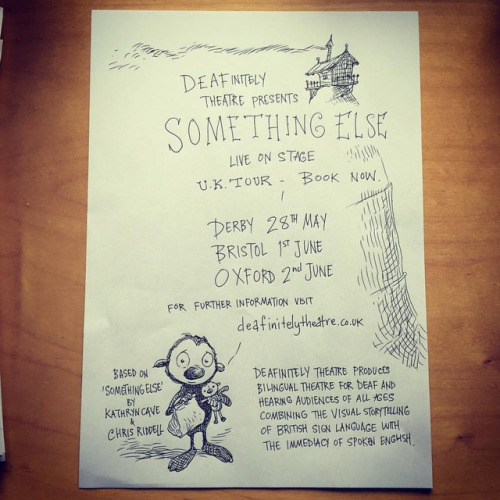 DEAFinitely
THEATRE PRESENTS
SOMETHING ELSE
LIVE ON STAGE
U.K. TOUR - BOOK NOW.
DERBY 28TH MAY
BRISTOL 1ST JUNE
OXFORD 2nd JUNE
FOR FURTHER INFORMATION VISIT
deafinitelytheatre.co.uk
BASED ON
'SOMETHING ELSE'
BY
KATHRYN CAVE
& CHRIS RIDDELL
DEAFINITELY THEATRE PRODUCES
BILINGUAL THEATRE FOR DEAF AND
HEARING AUDIENCES OF ALL AGES
COMBINING THE VISUAL STORYTELLING
OF BRITISH SIGN LANGUAGE WITH
THE IMMEDIACY OF SPOKEN ENGLISH.